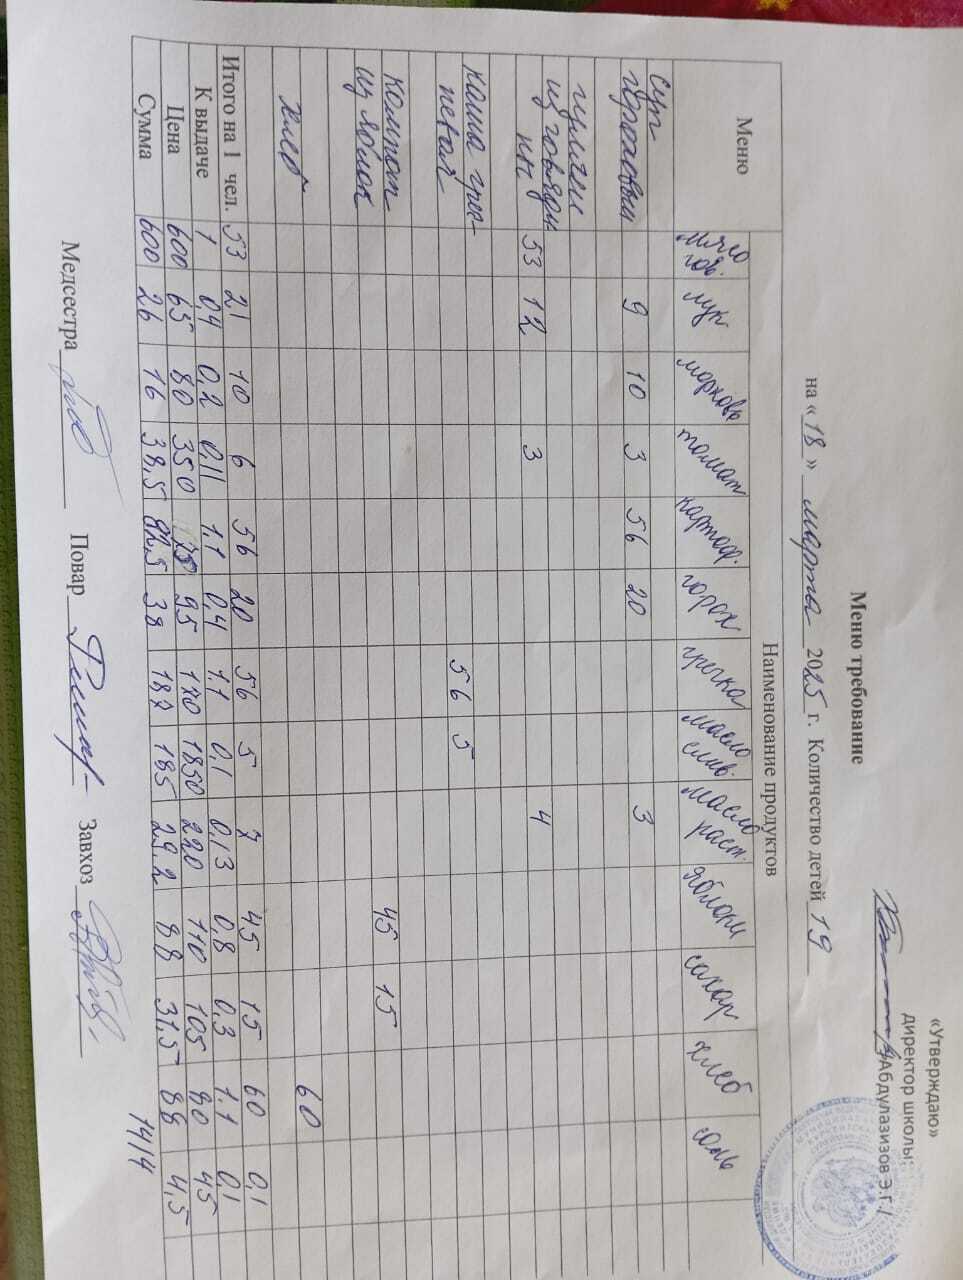 «Утверждаю»
директор школы:
Абдулазизов Э.Г./
Меню требование
на « 18 » марта 2025 г. Количество детей 19
Меню Наименование продуктов
мясо гов. лук морковь томат картоф. горох гречка масло слив. масло раст. яблоки сахар хлеб соль
суп-
гороховый 9 10 3 56 20 3
гуляш
из говяди
ны 53 12 3 4
каша греч-
невая 56 5
компот
из яблок 45 15
хлеб 60
Итого на 1 чел. 53 21 10 6 56 20 56 5 7 45 15 60 0,1
К выдаче 1 0,4 0,2 0,11 1,1 0,4 1.1 0,1 0,13 0,8 0,3 1.1 0,1
Цена 600 65 80 350 75 95 170 1850 220 110 105 80 45
Сумма 600 26 16 38,5 82,5 38 187 185 29.2 88 31,5 88 4,5
1414
Медсестра Повар Завхоз